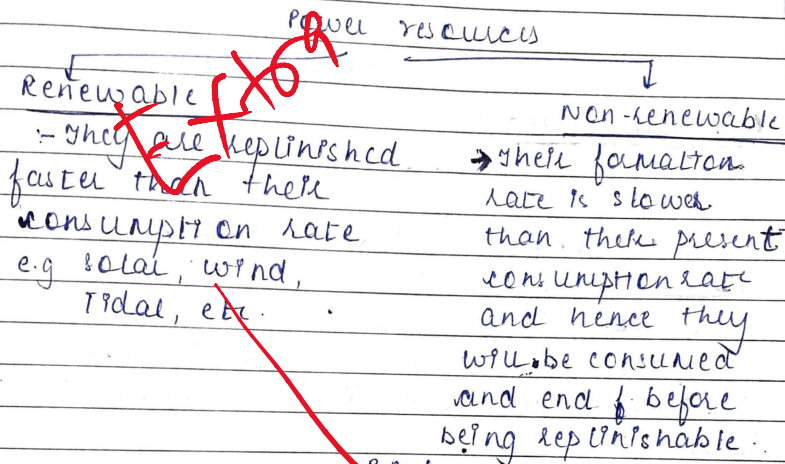 Power resources
Renewable
:- They are replinished
faster than their
consumption rate
e.g solar, wind,
Tidal, etc.
Extra
Non-renewable
→ Their formation
rate is slower
than their present
consumption rate
and hence they
will be consumed
and end before
being replinishable.